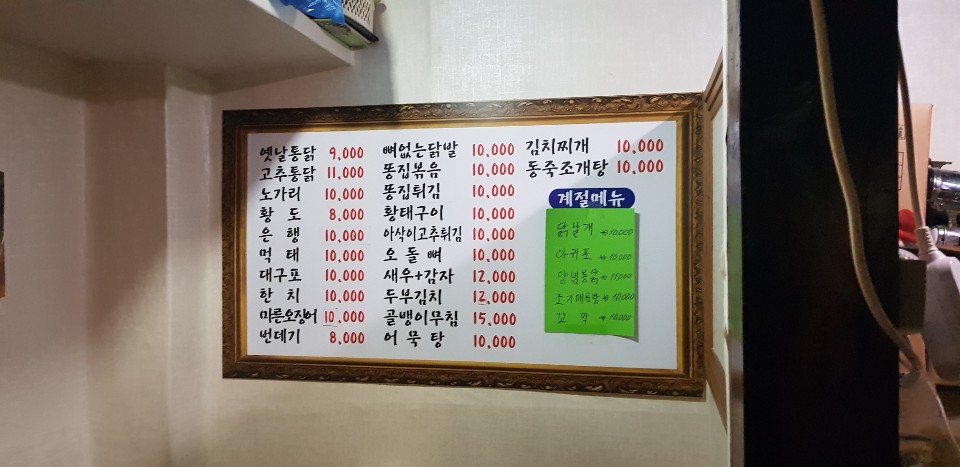 옛날통닭 9,000
고추통닭 11,000
노가리 10,000
황 도 8,000
은 행 10,000
먹 태 10,000
대구포 10,000
한 치 10,000
마른오징어 10,000
번데기 8,000
뼈없는닭발 10,000
똥집볶음 10,000
똥집튀김 10,000
황태구이 10,000
아삭이고추튀김 10,000
오 돌 뼈 10,000
새우+감자 12,000
두부김치 12,000
골뱅이무침 15,000
어 묵 탕 10,000
김치찌개 10,000
동죽조개탕 10,000
계절메뉴
닭날개 ₩10,000
아귀포 ₩10,000
양념통닭 ₩11,000
조기매운탕 ₩10,000
꼬 막 ₩10,000